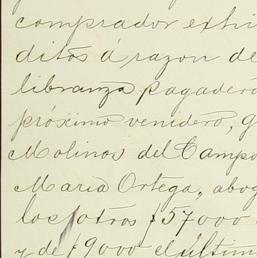 comprador exhi
ditos á razon de
libranza pagader
próximo venidero, g
Molinos del Campo
Maria Ortega, abog
los otros $57000
y de $9000 el últim